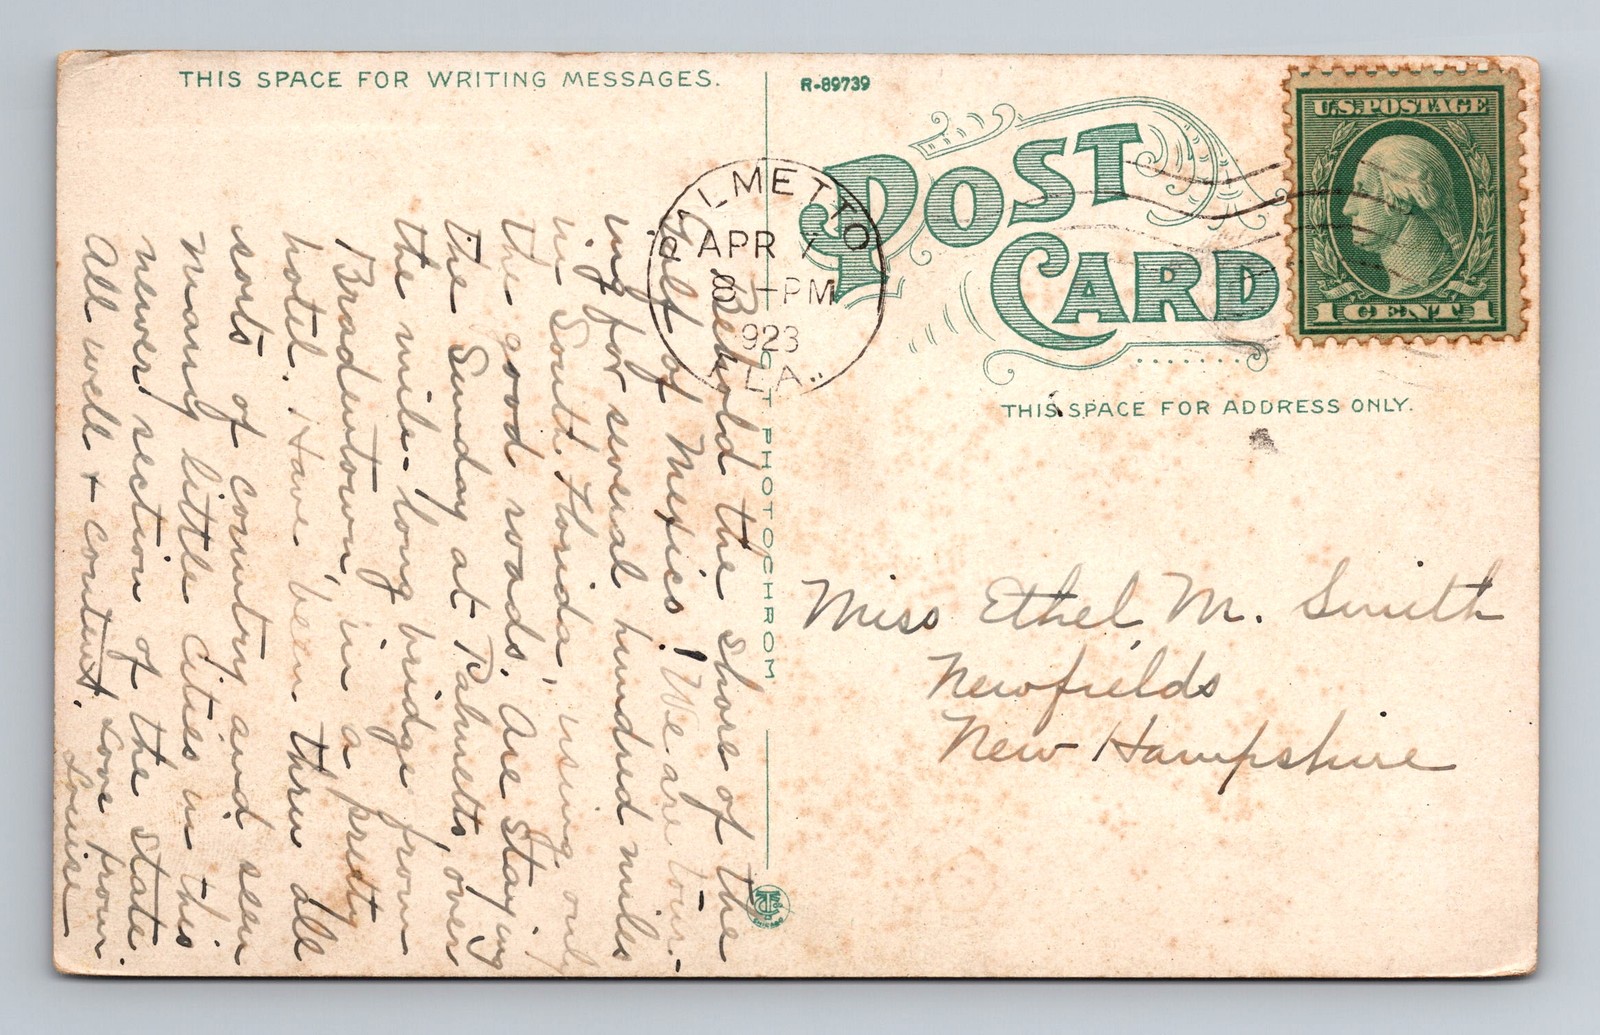 THIS SPACE FOR WRITING MESSAGES.
R-89739
POST CARD
U.S. POSTAGE
1 CENT 1
PALMETTO
APR 7
8-PM
1923
FLA.
THIS SPACE FOR ADDRESS ONLY.
PHOTOCHROM
Behold the shore of the
Gulf of Mexico! We are tour-
ing for several hundred miles
in South Florida, using only
the good roads. Are staying
the Sunday at Palmetto, over
the mile-long bridge from
Bradentown, in a pretty
hotel. Have been thru all
sorts of country and seen
many little cities in this
newer section of the state.
All well + content. Love from
Louise
Miss Ethel M. Smith
Newfields
New Hampshire